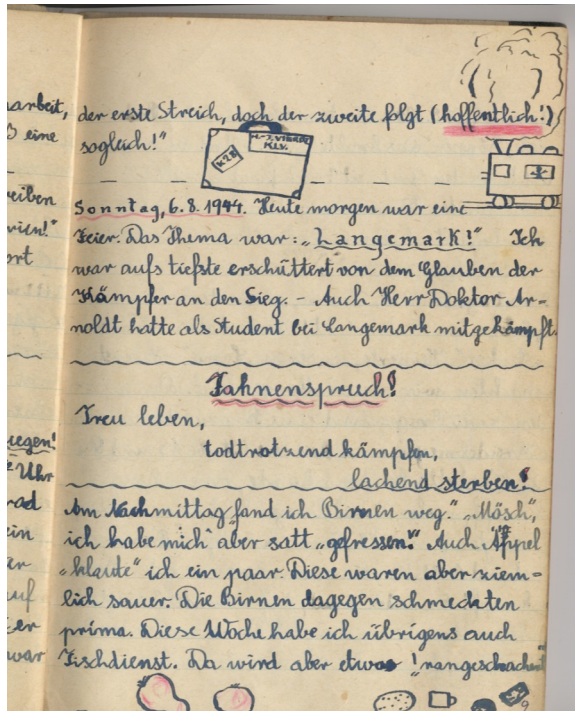 arbeit, der erste Streich, doch der zweite folgt (hoffentlich!)
eine sogleich!"
H.-J. K.L.V.
K28
Sonntag, 6.8.1944. Heute morgen war eine
Feier. Das Thema war: „Langemark!" Ich
war aufs tiefste erschüttert von dem Glauben der
Kämpfer an den Sieg. – Auch Herr Doktor Ar-
noldt hatte als Student bei Langemark mitgekämpft.
Fahnenspruch!
Treu leben,
todtrotzend kämpfen,
lachend sterben!
Am Nachmittag „fand ich Birnen weg." „Mösch",
ich habe mich aber satt „gefressen." Auch Äppel
„klaute" ich ein paar. Diese waren aber ziem-
lich sauer. Die Birnen dagegen schmeckten
prima. Diese Woche habe ich übrigens auch
Tischdienst. Da wird aber etwas